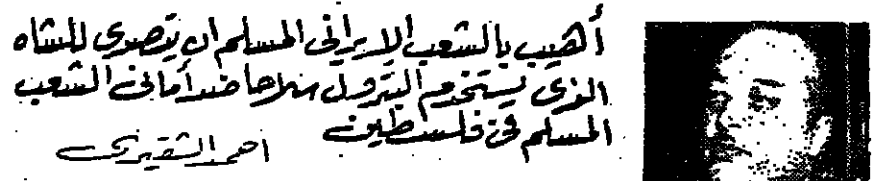 أهيب بالشعب الإيراني المسلم ان يتصدى للشاه
الذي يستخدم البترول سلاحا ضد أماني الشعب
المسلم في فلسطين
احمد الشقيري